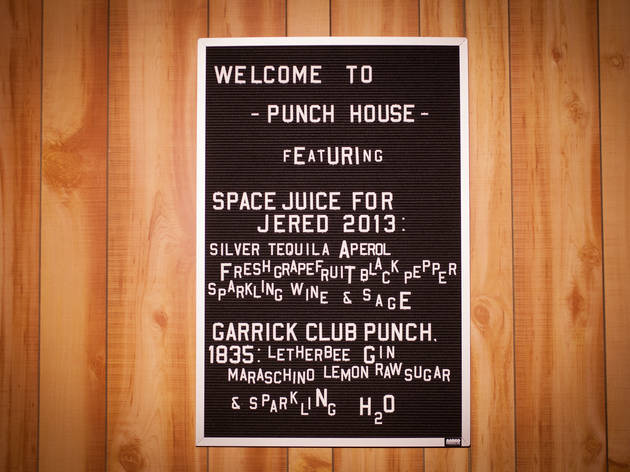 WELCOME TO
- PUNCH HOUSE -
FEATURING
SPACE JUICE FOR
JERED 2013:
SILVER TEQUILA APEROL
FRESH GRAPEFRUIT BLACK PEPPER
SPARKLING WINE & SAGE
GARRICK CLUB PUNCH,
1835: LETHERBEE GIN
MARASCHINO LEMON RAW SUGAR
& SPARKLING H2O